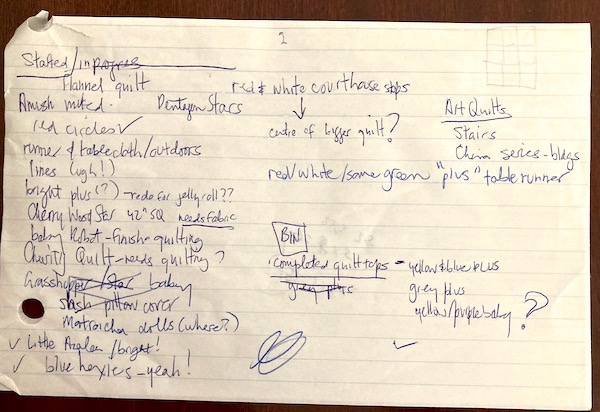 2
Started/in progress
Flannel quilt
Amish muted.
Pentagon Stars
red circles ✓
runner & tablecloth/outdoors
lines (ugh!)
bright plus (?) - redo for jelly roll??
Cherry Wood Star 42" SQ needs fabric
baby Robot - finish quilting
Charity Quilt - needs quilting?
Grasshopper /star baby
stash pillow cover
dolls (where?)
✓ Little Azalea /bright!
✓ blue hexies - yeah!
red & white courthouse steps
↓
centre of bigger quilt?
red/white/some green "plus" tablerunner
Art Quilts
Stairs
China series - bldgs
BIN
completed quilt tops - yellow & blue plus
grey plus
grey plus
yellow/purple baby ?
✓